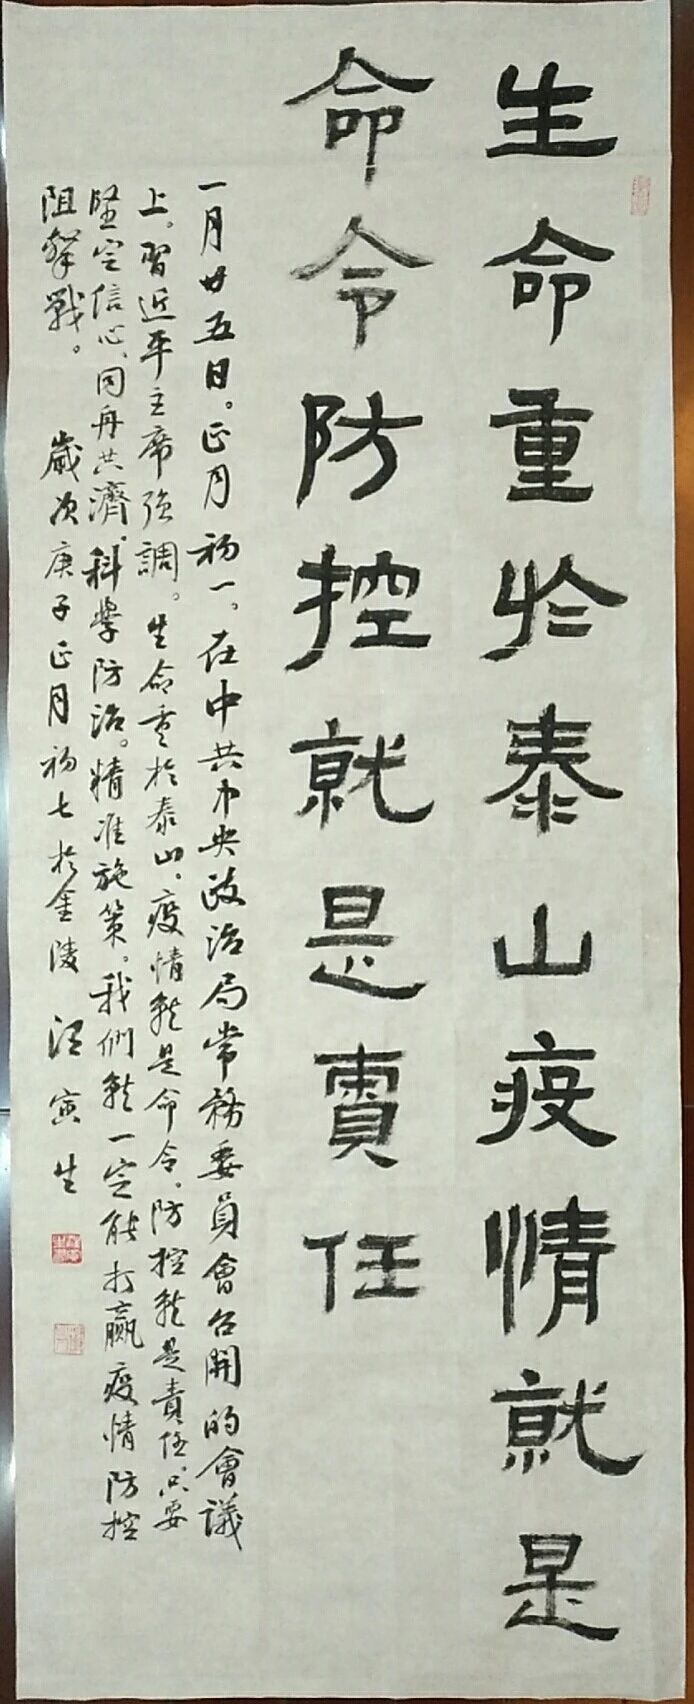 生命重於泰山疫情就是
命令防控就是責任
一月廿五日。正月初一。在中共中央政治局常務委員會召開的會議
上。習近平主席強調。生命重於泰山、疫情就是命令、防控就是責任。只要
堅定信心、同舟共濟、科學防治。精准施策。我們就一定能打贏疫情防控
阻擊戰。
歲次庚子正月初七於金陵 汪寅生